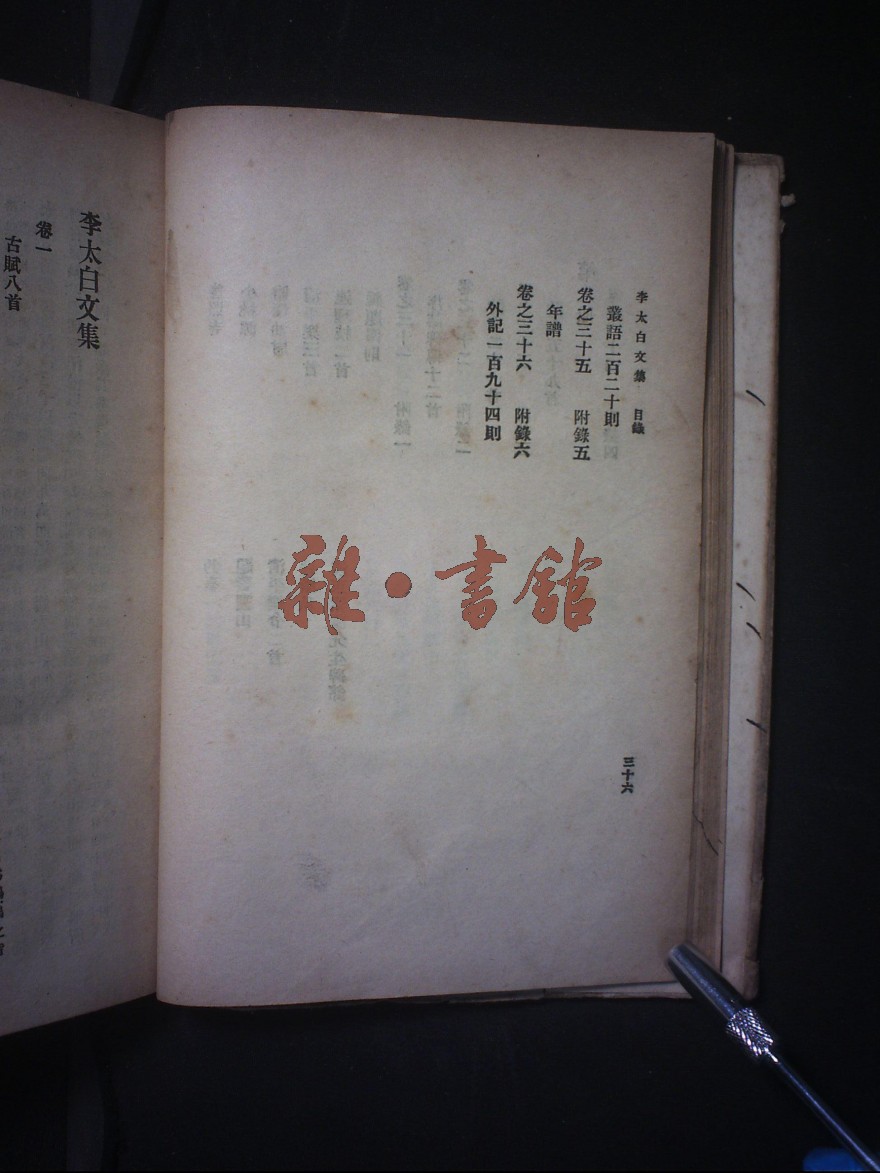 李太白文集 目錄
叢語二百二十則
卷之三十五 附錄五
年譜
卷之三十六 附錄六
外記一百九十四則
三十六
雜·書館
李太白文集
卷一
古賦八首